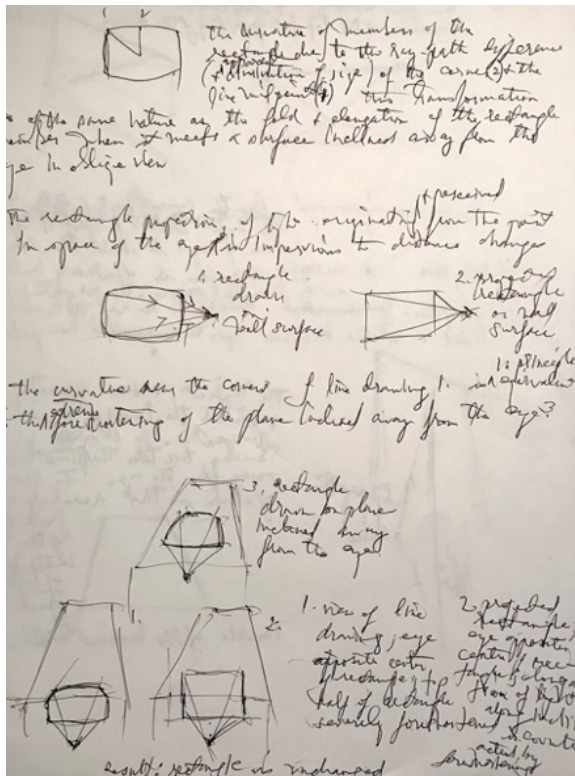 1 2
the curvature of members of the
rectangle due to the ray-path difference
(+ apparent diminution of size) of the corner (2) + the
line midpoint (1) this transformation
of the same nature as the fold + elongation of the rectangle
when it meets a surface inclined away from the
eye in oblique view
the rectangle projection of light originating + perceived from the point
in space of the eye is impervious to distance changes
1. rectangle
drawn
wall surface
2. projected
rectangle
on wall
surface
the curvature near the corners of line drawing 1. is in principle equivalent
to the extreme foreshortening of the plane inclined away from the eye?
3. rectangle
drawn on plane
inclined away
from the eye
1.
2.
1. view of line
drawing, eye
opposite center
of rectangle, top
half of rectangle
severely foreshortened
2. projected
rectangle,
eye opposite
center of rectangle
elongation
of
along
is counter
acted by
foreshortening
result: rectangle is unchanged